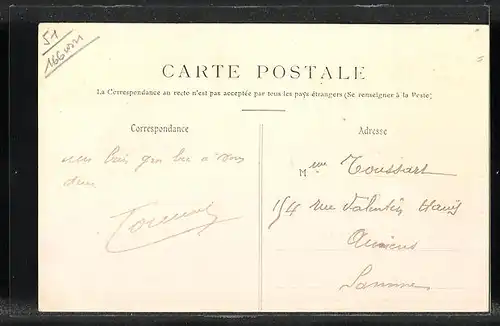 51
CARTE POSTALE
La Correspondance au recto n'est pas acceptée par tous les pays étrangers (Se renseigner à la Poste)
Correspondance
Adresse
à vous
deux
Mme Toussart
154 rue Valentin Haüy
Amiens
Somme